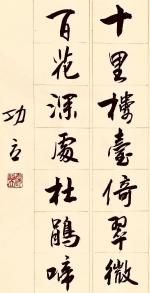 十里樓臺倚翠微
百花深處杜鵑啼
功立